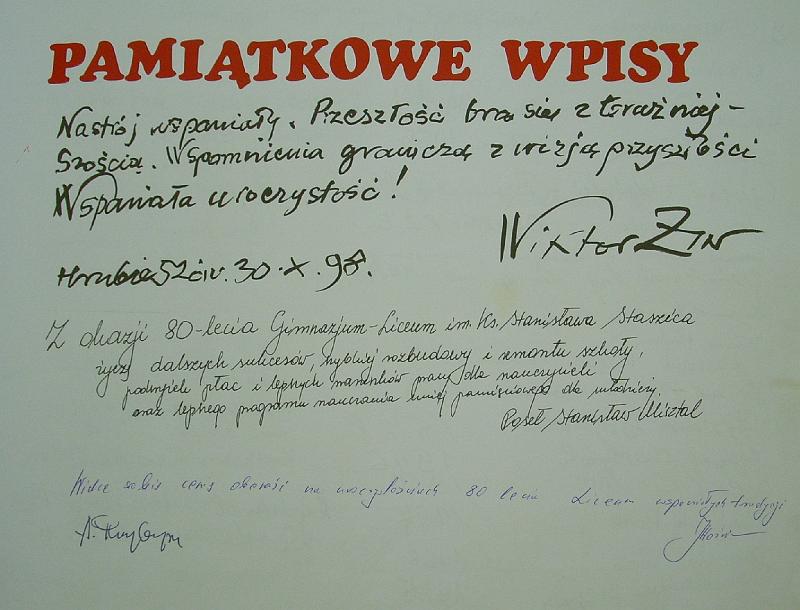 PAMIĄTKOWE WPISY
Nastrój wspaniały. Przeszłość bra się z teraźniej-
szością. Wspomnienia graniczą z wizją przyszłości
Wspaniała uroczystość!
Wiktor Zin
Hrubieszów. 30.X.98.
Z okazji 80-lecia Gimnazjum-Liceum im. Ks. Stanisława Staszica
życzę dalszych sukcesów, szybkiej rozbudowy i remontu szkoły,
podwyżek płac i lepszych warunków pracy dla nauczycieli
oraz lepszego programu nauczania mniej pamięciowego dla młodzieży.
Poseł Stanisław Misztal
sobie obecność na uroczystościach 80 lecia Liceum wspaniałych tradycji